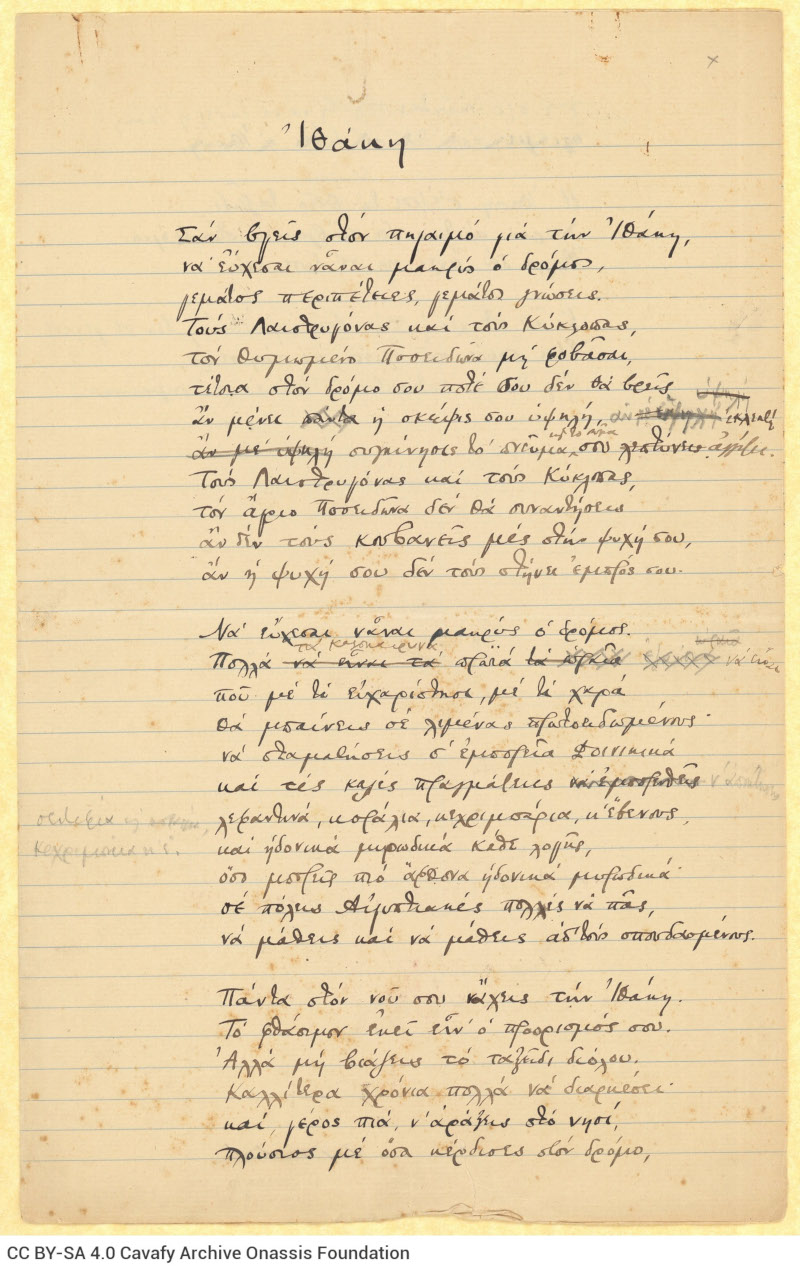 Ἰθάκη
Σάν βγεῖς στόν πηγαιμό γιά τήν Ἰθάκη,
νά εὔχεσαι νἆναι μακρύς ὁ δρόμος,
γεμάτος περιπέτειες, γεμάτος γνώσεις.
Τούς Λαιστρυγόνας καί τούς Κύκλωπας,
τόν θυμωμένο Ποσειδῶνα μή φοβᾶσαι,
τέτοια στόν δρόμο σου ποτέ σου δέν θά βρεῖς
ἄν μένει πάντα ἡ σκέψις σου ὑψηλή, ἐκλεκτή
συγκίνησις τό πνεῦμα σου ἀγγίζει.
Τούς Λαιστρυγόνας καί τούς Κύκλωπας,
τόν ἄγριο Ποσειδῶνα δέν θά συναντήσεις
ἄν δέν τούς κουβανεῖς μές στήν ψυχή σου,
ἄν ἡ ψυχή σου δέν τούς στήνει ἐμπρός σου.
Νά εὔχεσαι νἆναι μακρύς ὁ δρόμος.
τά καλοκαιρινά
Πολλά νά εἶναι τά πρωϊά νά εἶναι
πού μέ τί εὐχαρίστησι, μέ τί χαρά
θά μπαίνεις σέ λιμένας πρωτοειδωμένους·
νά σταματήσεις σ' ἐμπορεῖα Φοινικικά
καί τές καλές πραγμάτειες ν' ἀποκτήσεις
σεντέφια
κεχριμπάρια κ
λεχαντηνά, κοράλια, κεχριμπάρια, κ' ἔβενους,
καί ἡδονικά μυρωδικά κάθε λογῆς,
ὅσο μπορεῖς πιό ἄφθονα ἡδονικά μυρωδικά·
σέ πόλεις Αἰγυπτιακές πολλές νά πᾶς,
νά μάθεις καί νά μάθεις ἀπ' τούς σπουδασμένους.
Πάντα στόν νοῦ σου νἄχεις τήν Ἰθάκη.
Τό φθάσιμον ἐκεῖ εἶν' ὁ προορισμός σου.
Ἀλλά μή βιάζεις τό ταξεῖδι διόλου.
Καλλίτερα χρόνια πολλά νά διαρκέσει·
καί, γέρος πιά, ν' ἀράξεις στό νησί,
πλούσιος μέ ὅσα κέρδισες στόν δρόμο,
CC BY-SA 4.0 Cavafy Archive Onassis Foundation